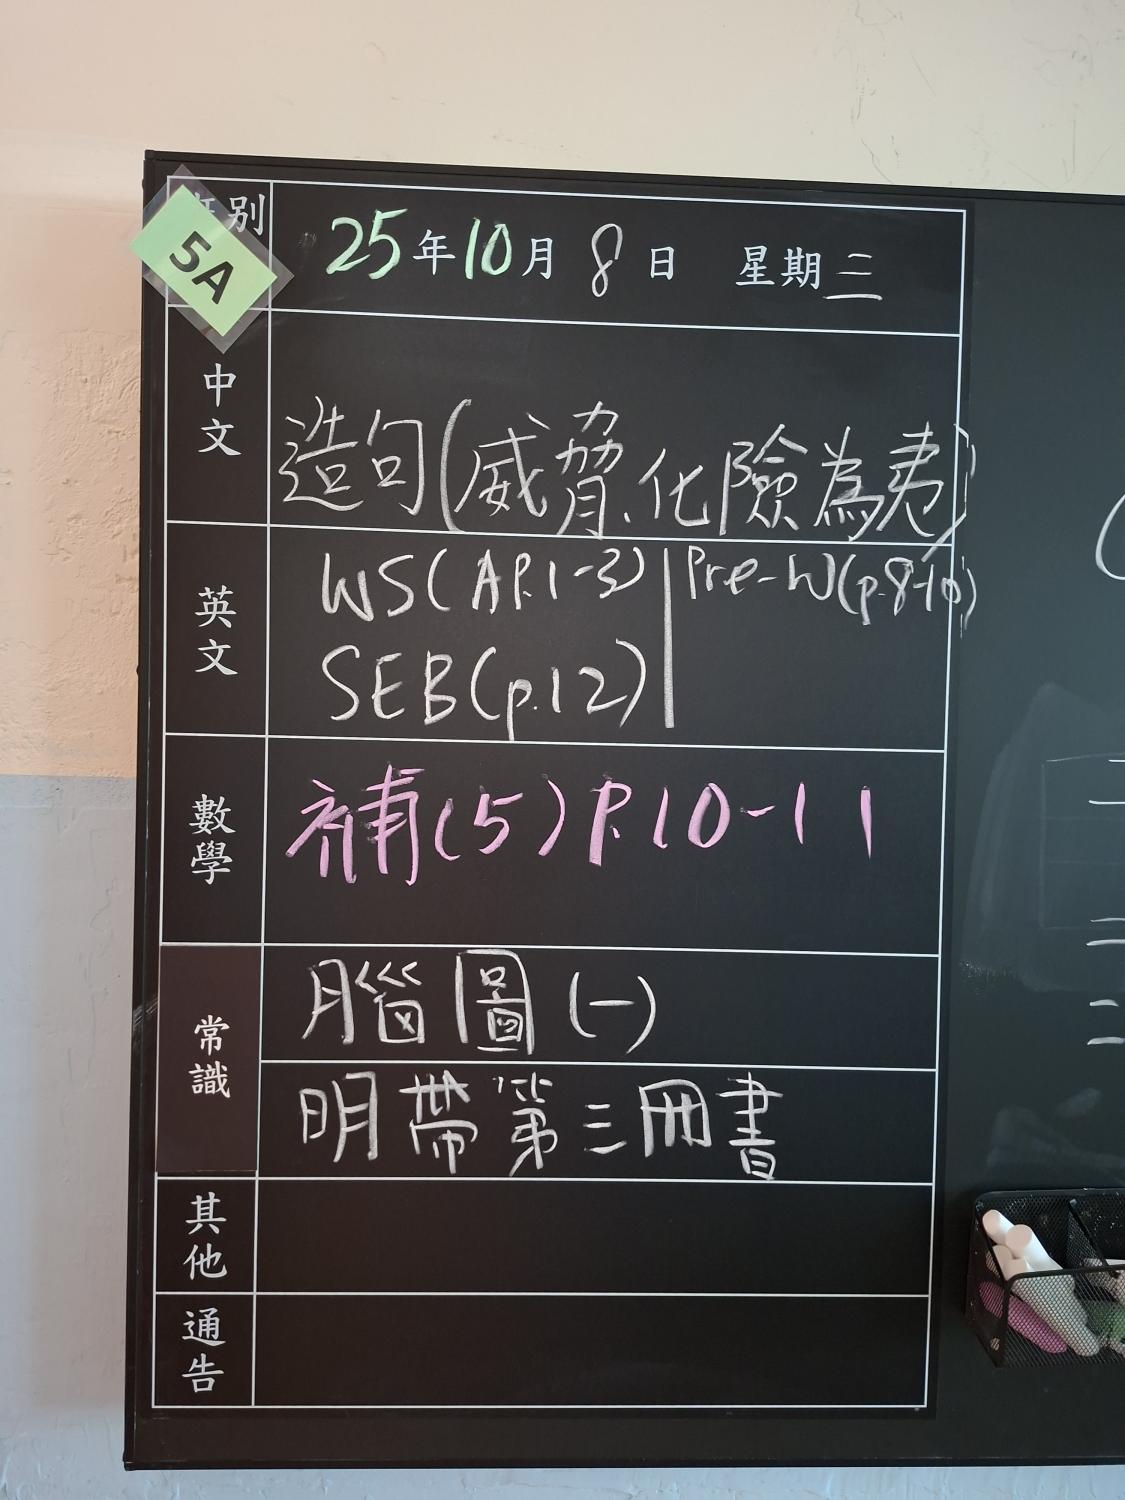 別
5A
25年10月8日 星期三
中文
造句(威脅、化險為夷)
英文
WS(AP.1-3) Pre-W(p.8-10)
SEB(p.12)
數學
補(5)P.10-11
常識
腦圖(一)
明帶第三冊書
其他
通告